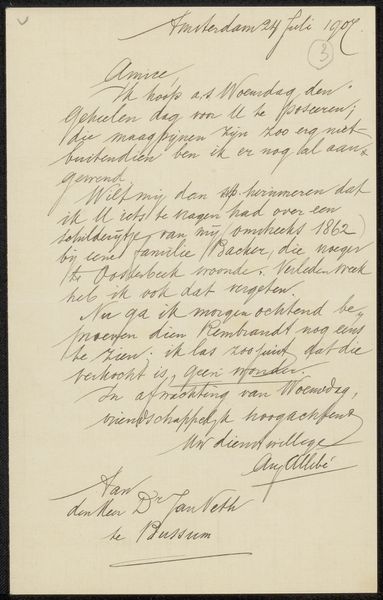 Amsterdam 24 Juli 1907
3
Amice,
Ik hoop a.s. Woensdag den
geheelen dag voor U te poseeren;
die maagpijnen zijn zoo erg niet
buitendien ben ik er nog al aan
gewend
Wilt mij dan herinneren dat
ik U iets te vragen had over een
schilderijtje van mij (omstreeks 1862)
bij eene familie Backer, die vroeger
te Oosterbeek woonde. Verleden week
heb ik ook dat vergeten.
Nu ga ik morgen ochtend be-
proeven dien Rembrandt nog eens
te zien; ik las zoo juist dat die
verkocht is, geen wonder.
In afwachting van Woensdag,
vriendschappelijk hoogachtend
Uw dienstwillige
Aug Allebé
Aan
den Heer Dr Jan Veth
te Bussum